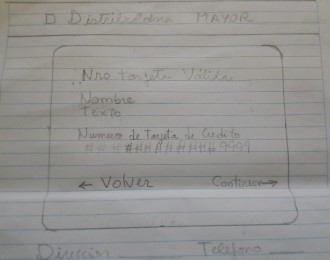 Distribuidora MAYOR
Nro tarjeta Válida
Nombre
Texto
Numero de Tarjeta de Credito
############9999
← Volver Continuar→
Direccion Telefono